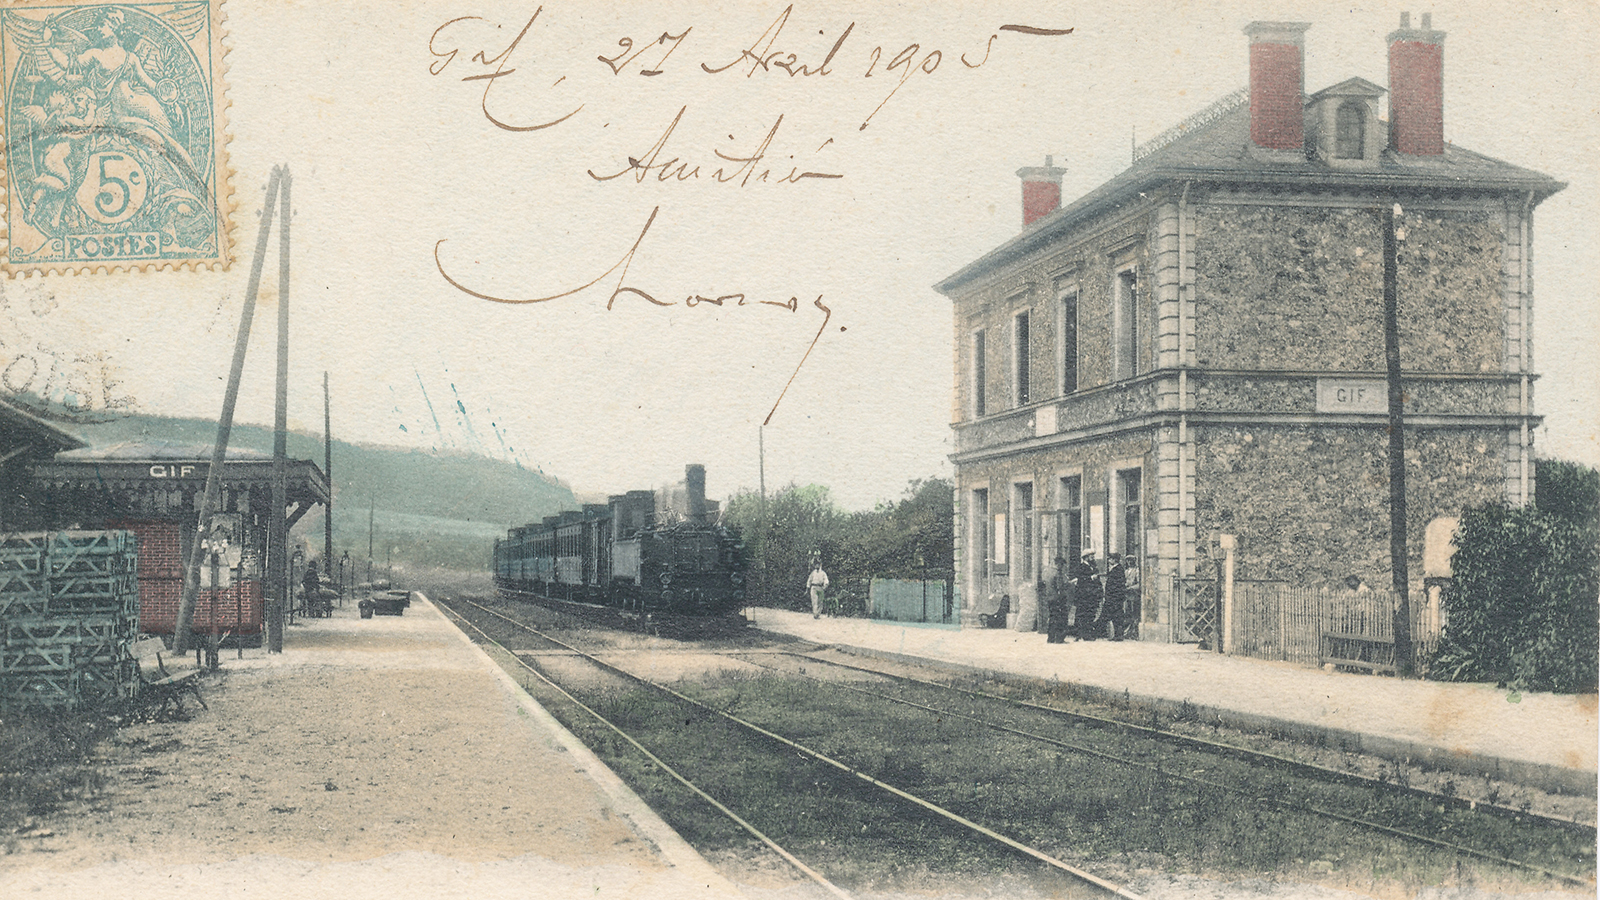 Gif, 27 Avril 1905
Amitié
5c
POSTES
OISE
GIF
GIF